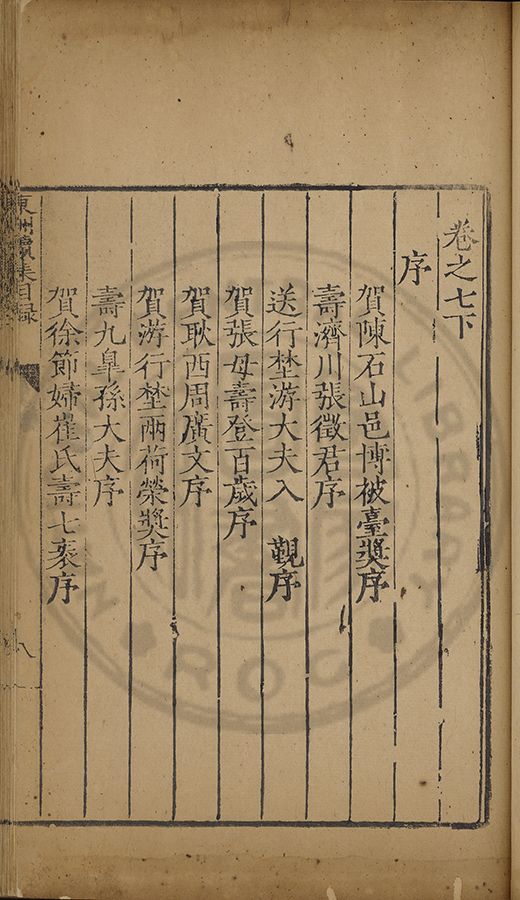 卷之七下
序
賀陳石山邑博被臺獎序
壽濟川張徵君序
送行埜游大夫入 覲序
賀張母壽登百歲序
賀耿西周廣文序
賀游行埜兩荷榮獎序
壽九皐孫大夫序
賀徐節婦崔氏壽七袠序
東洲續集目録
八